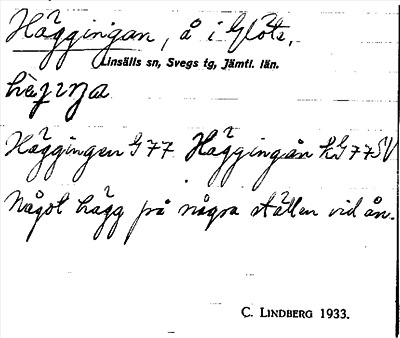 Häggingan, å i Glöte,
Linsälls sn, Svegs tg, Jämtl. län.
Häggingen G 77 Häggingån KG 77 SV
Något hägg på några ställen vid ån.
C. LINDBERG 1933.